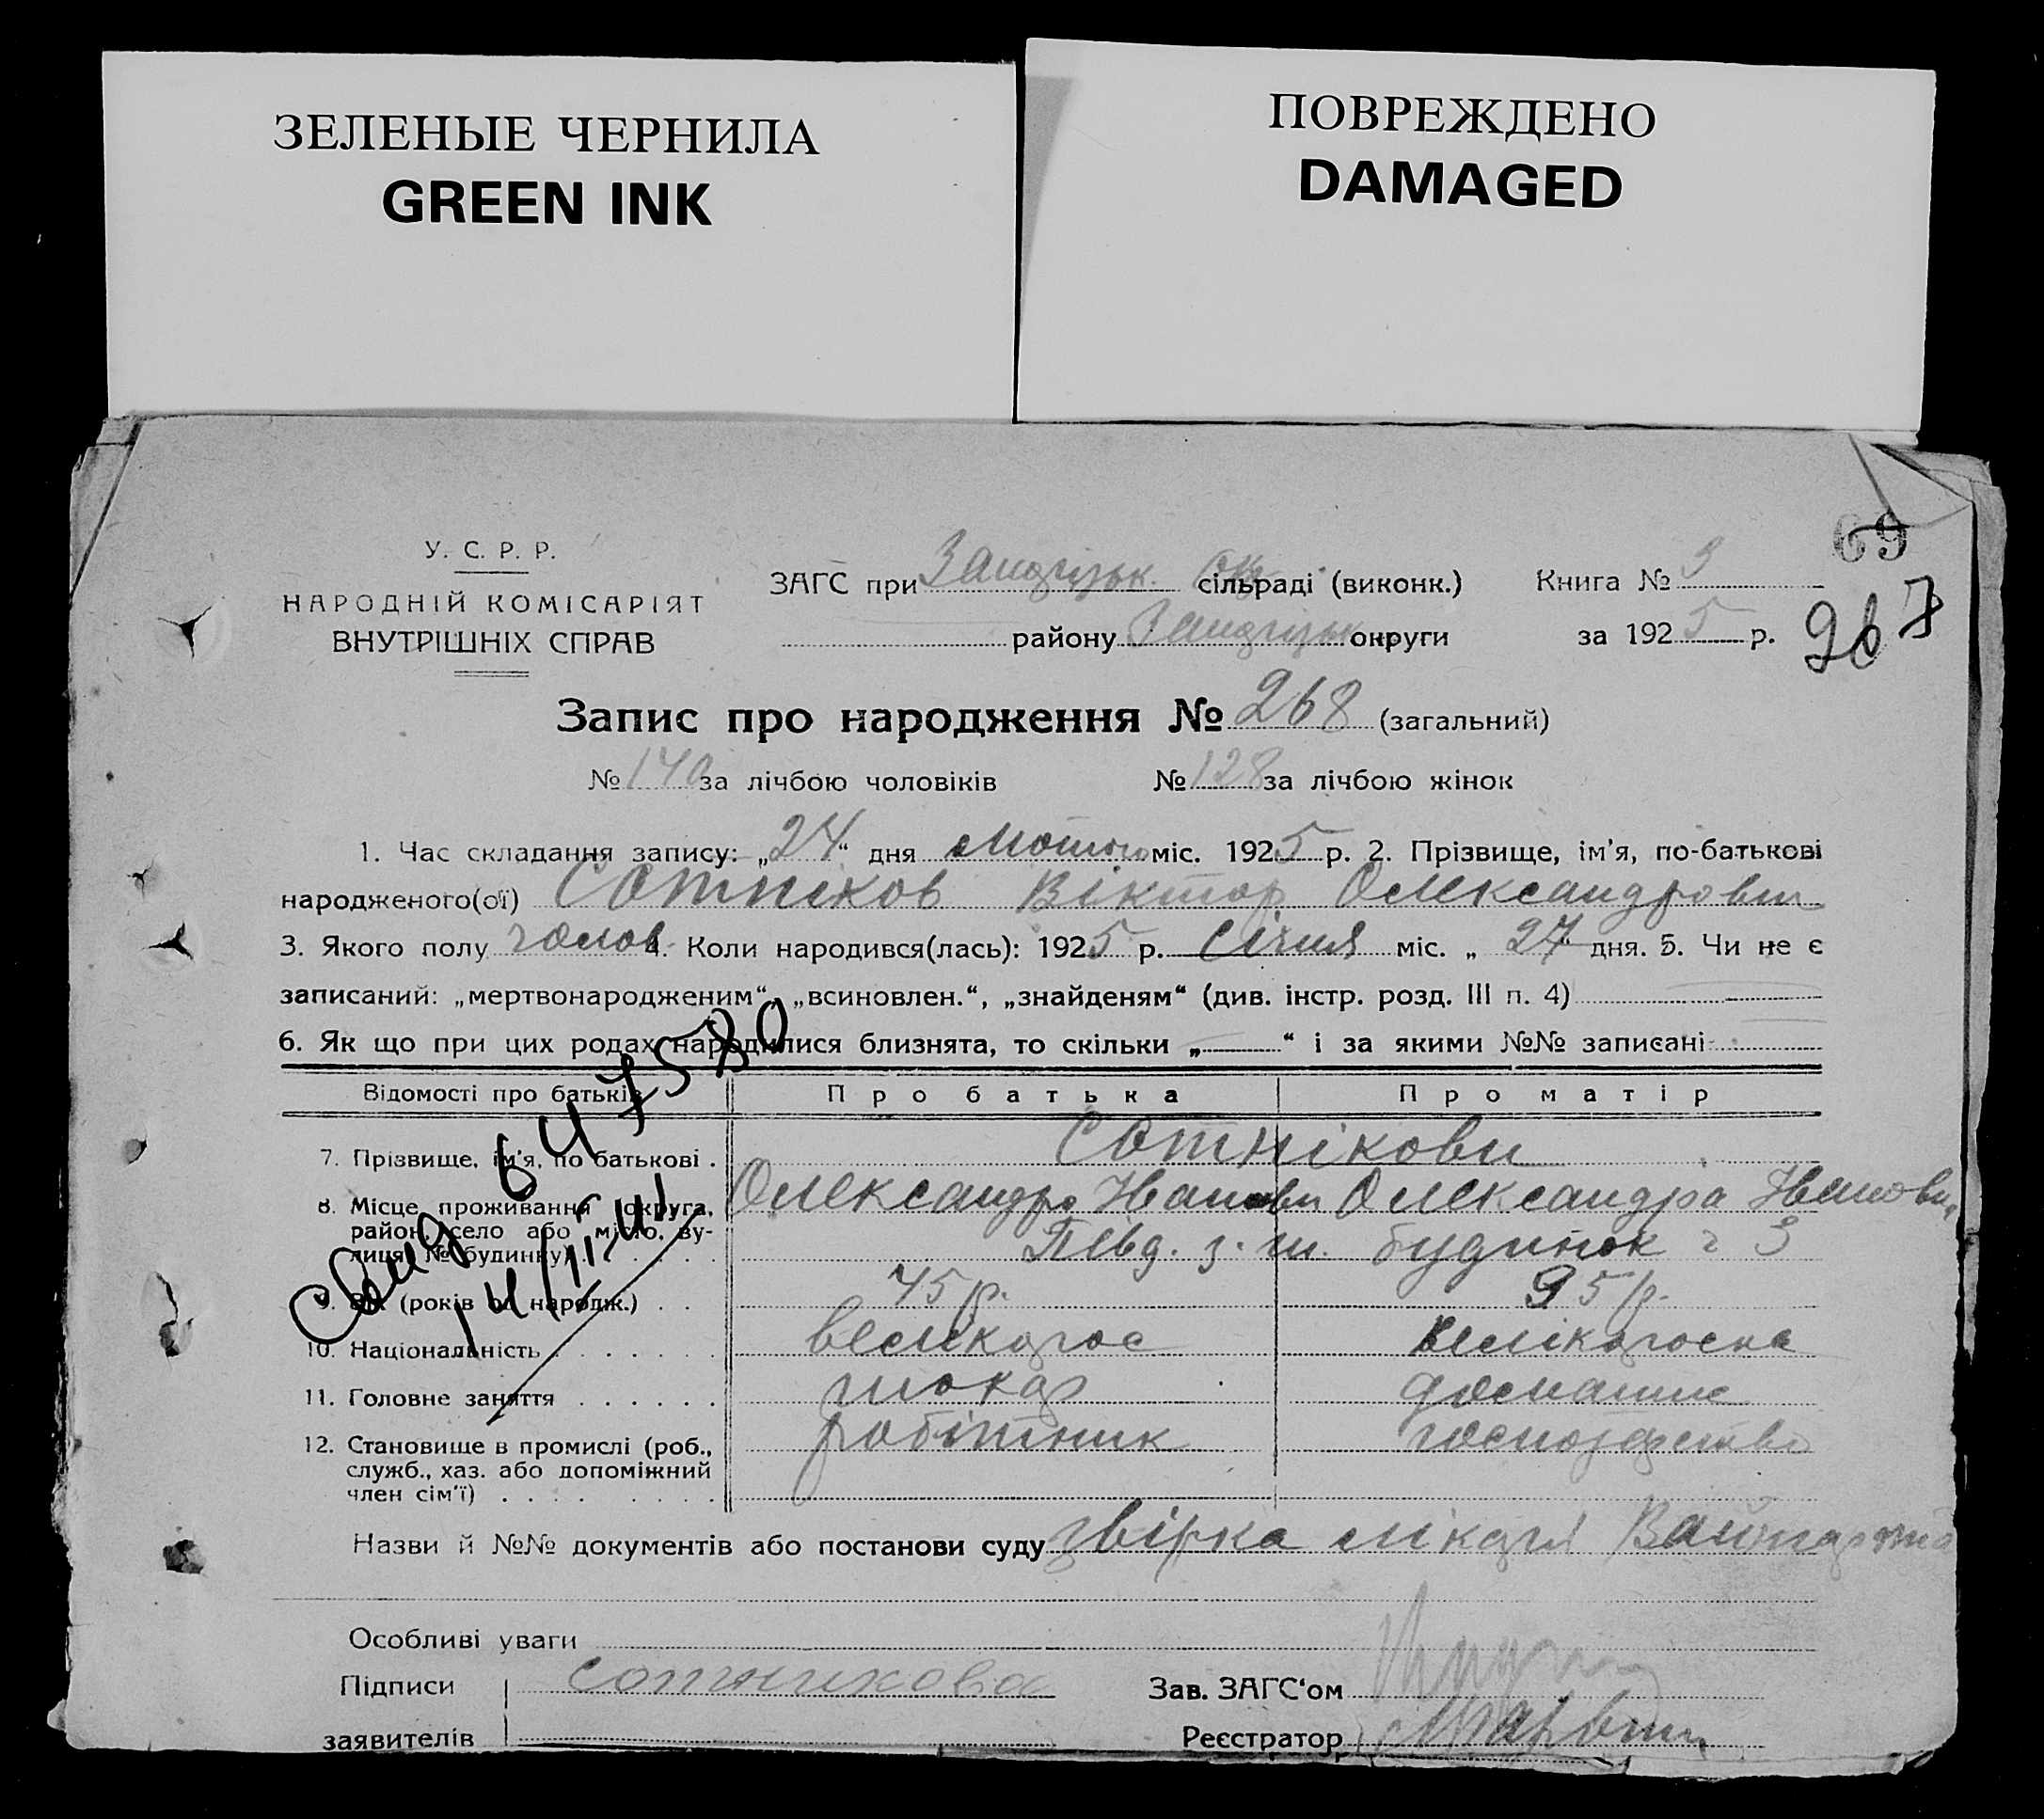 ЗЕЛЕНЫЕ ЧЕРНИЛА
GREEN INK
ПОВРЕЖДЕНО
DAMAGED
69
У. С. Р. Р.
НАРОДНІЙ КОМІСАРІЯТ
ВНУТРІШНІХ СПРАВ
ЗАГС при сільраді (виконк.)
району округи
Книга № 3
за 1925 р.
267
Запис про народження № 268 (загальний)
№ 140 за лічбою чоловіків № 128 за лічбою жінок
1. Час складання запису: „24“ дня лютого міс. 1925 р. 2. Прізвище, ім'я, по-батькові
народженого(ої) Сотніков Віктор Олександрович
3. Якого полу чолов. 4. Коли народився(лась): 1925 р. січня міс. „27“ дня. 5. Чи не є
записаний: „мертвонародженим“, „всиновлен.“, „знайденям“ (див. інстр. розд. III п. 4)
6. Як що при цих родах народилися близнята, то скільки „—“ і за якими №№ записані
Відомості про батьків Про батька Про матір
7. Прізвище, ім'я, по батькові . Сотнікови
8. Місце проживання округа, Олександр Іванови Олександра Іванови
район, село або місто, ву-
лиця, № будинку) Півд. з. ш. будинок ч 3
9. Вік (років од народж.) 45 р. 35 р.
10. Національність великорос великороска
11. Головне заняття токар домашнє
12. Становище в промислі (роб., робітник господарство
служб., хаз. або допоміжний
член сім'ї)
Свид 647580
14/II-41
Назви й №№ документів або постанови суду звірка лікаря
Особливі уваги
Підписи Сотникова Зав. ЗАГС‘ом
заявителів Реєстратор